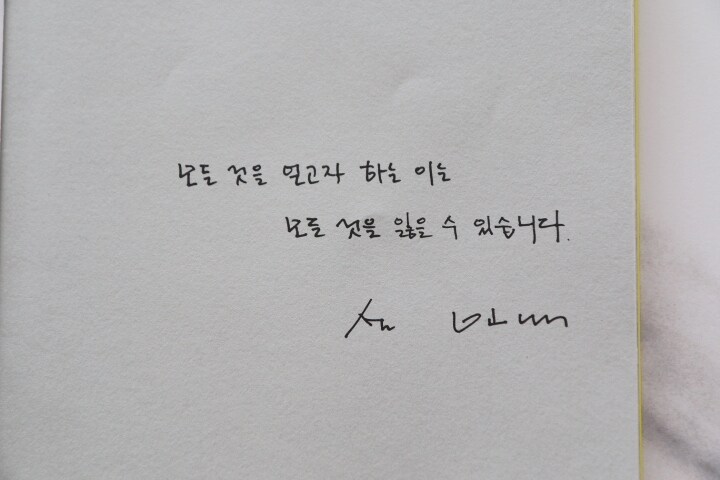 모든 것을 얻고자 하는 이는
모든 것을 잃을 수 있습니다.